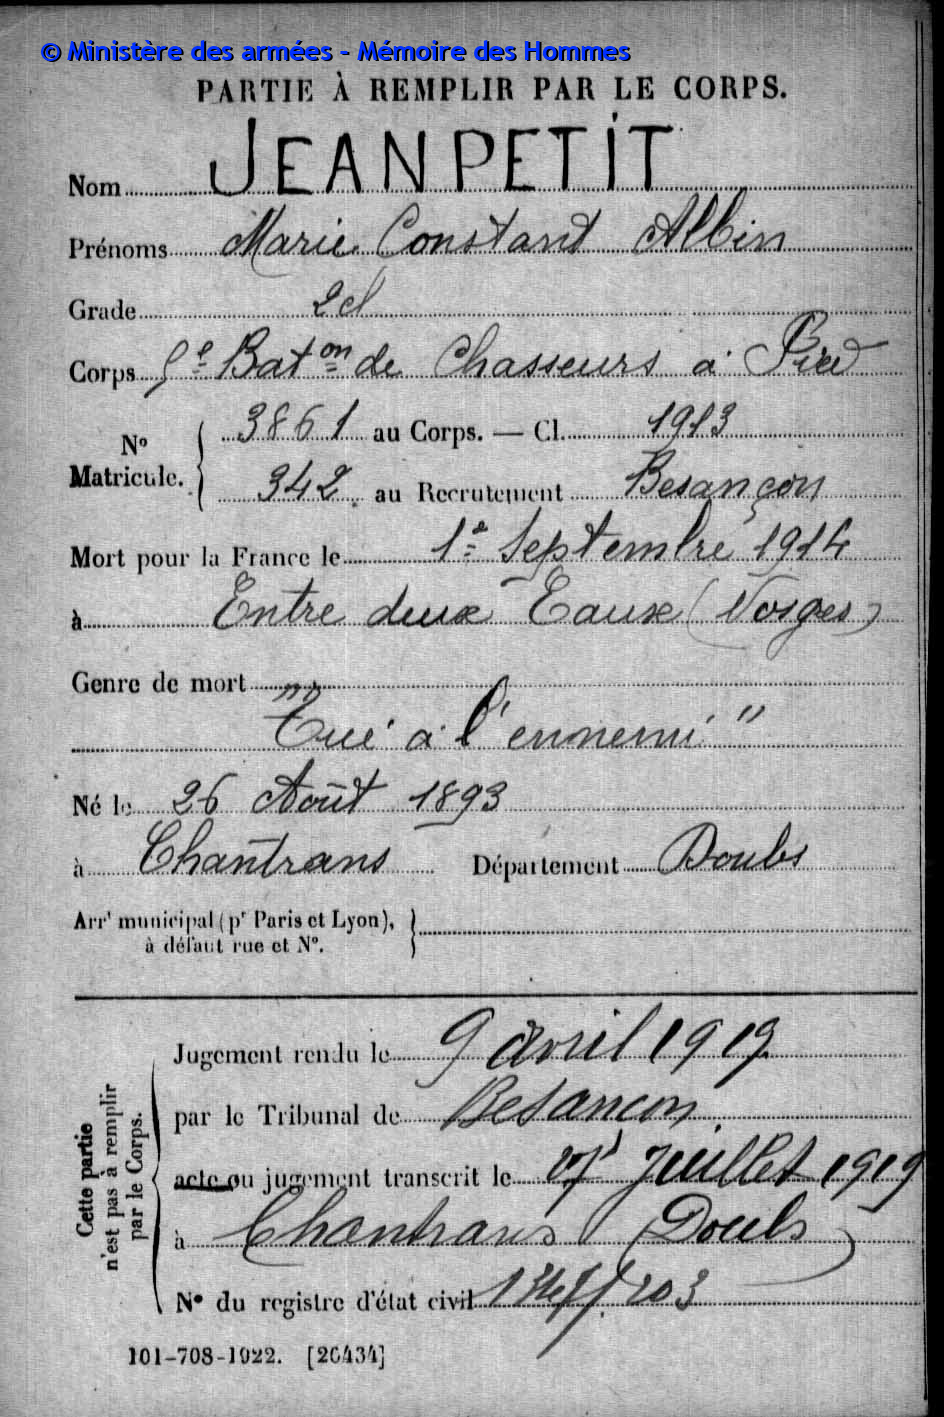 © Ministère des armées - Mémoire des Hommes
PARTIE À REMPLIR PAR LE CORPS.
Nom JEANPETIT
Prénoms Marie Constant Albin
Grade 2 cl
Corps 5e Baton de Chasseurs à Pied
No Matricule. { 3861 au Corps. — Cl. 1913
342 au Recrutement Besançon
Mort pour la France le 1er Septembre 1914
à Entre deux Eaux (Vosges)
Genre de mort
"Tué à l'ennemi"
Né le 26 Août 1893
à Chantrans Département Doubs
Arrt municipal (pr Paris et Lyon),
à défaut rue et No.
Cette partie
n'est pas à remplir
par le Corps.
Jugement rendu le 9 avril 1919
par le Tribunal de Besancon
acte ou jugement transcrit le juillet 1919
à Chantrans (Doubs)
No du registre d'état civil
101-708-1922. [26434]